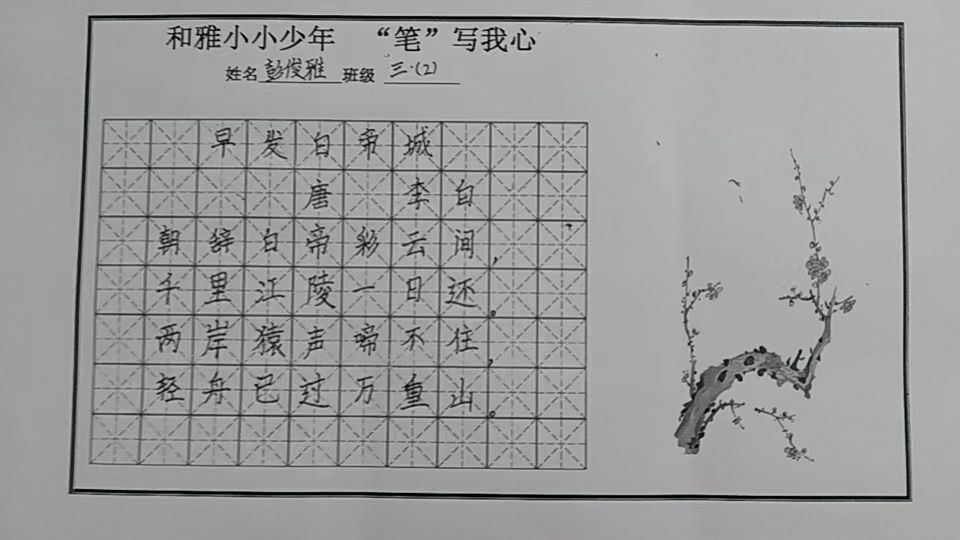 和雅小小少年 “笔”写我心
姓名 彭俊雅 班级 三.(2)
早发白帝城
唐 李白
朝辞白帝彩云间，
千里江陵一日还。
两岸猿声啼不住，
轻舟已过万重山。